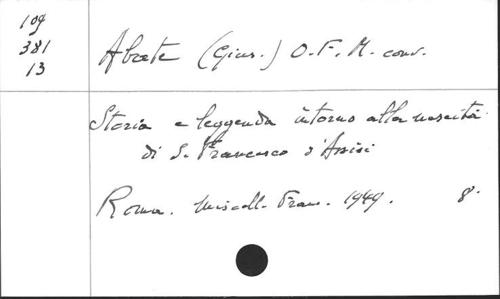 109
381
13
Abate (Gius.) O.F.M. conv.
Storia e leggenda intorno alla nascita
di S. Francesco d'Assisi
Roma. Miscell. Fran. 1949. 8.